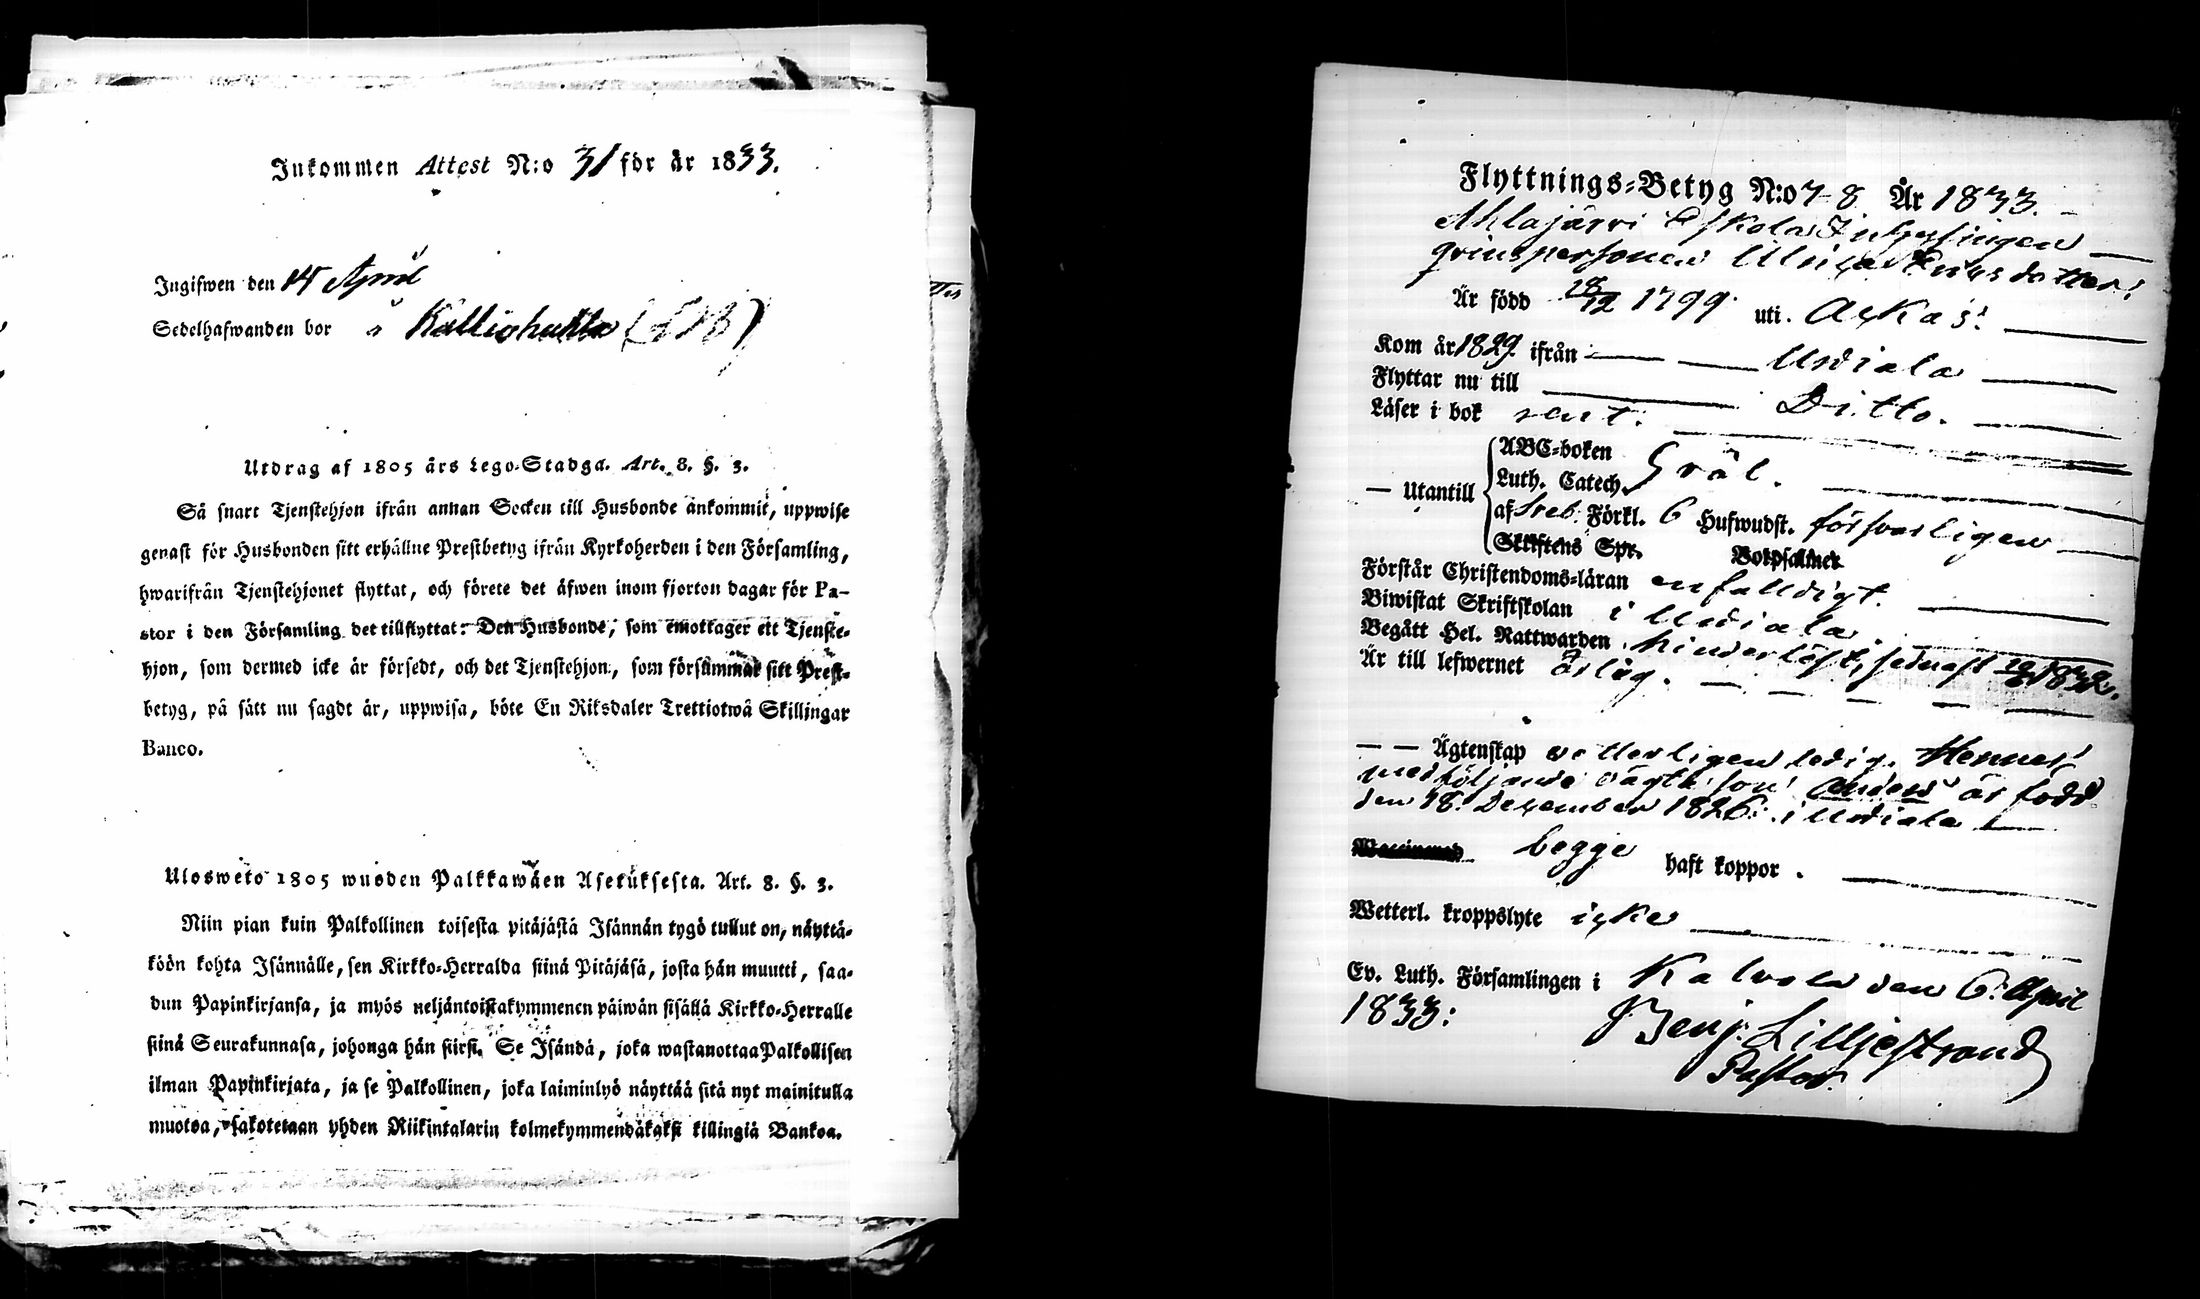 Inkommen Attest N:o 31 för år 1833.
Ingifwen den 14 April
Sedelhafwanden bor å Kalliohuhta
Utdrag af 1805 års Lego-Stadga. Art. 8. §. 3.
Så snart Tjenstehjon ifrån annan Socken till Husbonde ankommit, uppwise
genast för Husbonden sitt erhållne Prestbetyg ifrån Kyrkoherden i den Församling,
hwarifrån Tjenstehjonet flyttat, och förete det äfwen inom fjorton dagar för Pa-
stor i den Församling det tillflyttat: Den Husbonde, som emottager ett Tjenste-
hjon, som dermed icke är försedt, och det Tjenstehjon, som försummar sitt Prest-
betyg, på sätt nu sagdt är, uppwisa, böte En Riksdaler Trettiotwå Skillingar
Banco.
Uloswéto 1805 wuoden Palkkawäen Asetuksesta. Art. 8. §. 3.
Niin pian kuin Palkollinen toisesta pitäjästä Isännän tygö tullut on, näyttä-
köön kohta Isännälle, sen Kirkko-Herralda siinä Pitäjäsä, josta hän muutti, saa-
dun Papinkirjansa, ja myös neljäntoistakymmenen päiwän sisällä Kirkko-Herralle
siinä Seurakunnasa, johonga hän siirsi. Se Isändä, joka wastanottaa Palkollisen
ilman Papinkirjata, ja se Palkollinen, joka laiminlyö näyttää sitä nyt mainitulla
muotoa, sakotetaan yhden Riikintalarin kolmekymmendäkaksi killingiä Bankoa.
Flyttnings-Betyg N:o 78 År 1833.
Ahlajärvi Eskola Inhysingen
qvinspersonen Ulrica Eriksdotter:
Är född 28/12 1799 uti. Ackas:
Kom år 1829. ifrån Urdiala
Flyttar nu till Ditto.
Läser i bok rent.
— Utantill
ABC-boken
Luth. Catech. Gräl.
af Sveb. Förkl. 6 Hufwudst. försvarligen
Skriftens Spr. Botpsalmer
Förstår Christendoms-läran enfalldigt.
Biwistat Skriftskolan i Urdiala.
Begått Hel. Nattwarden hinderlöst, sednast 1832.
Är till lefwernet ärlig.
— — Ägtenskap vetterligen ledig. Hennes
medföljande oägta son Anders är född
den 18. December 1826: i Urdiala
begge haft koppor.
Wetterl. kroppslyte icke
Ev. Luth. Församlingen i Kalvola den 6. April
1833:
Benj. Lilljestrand
Pastor.